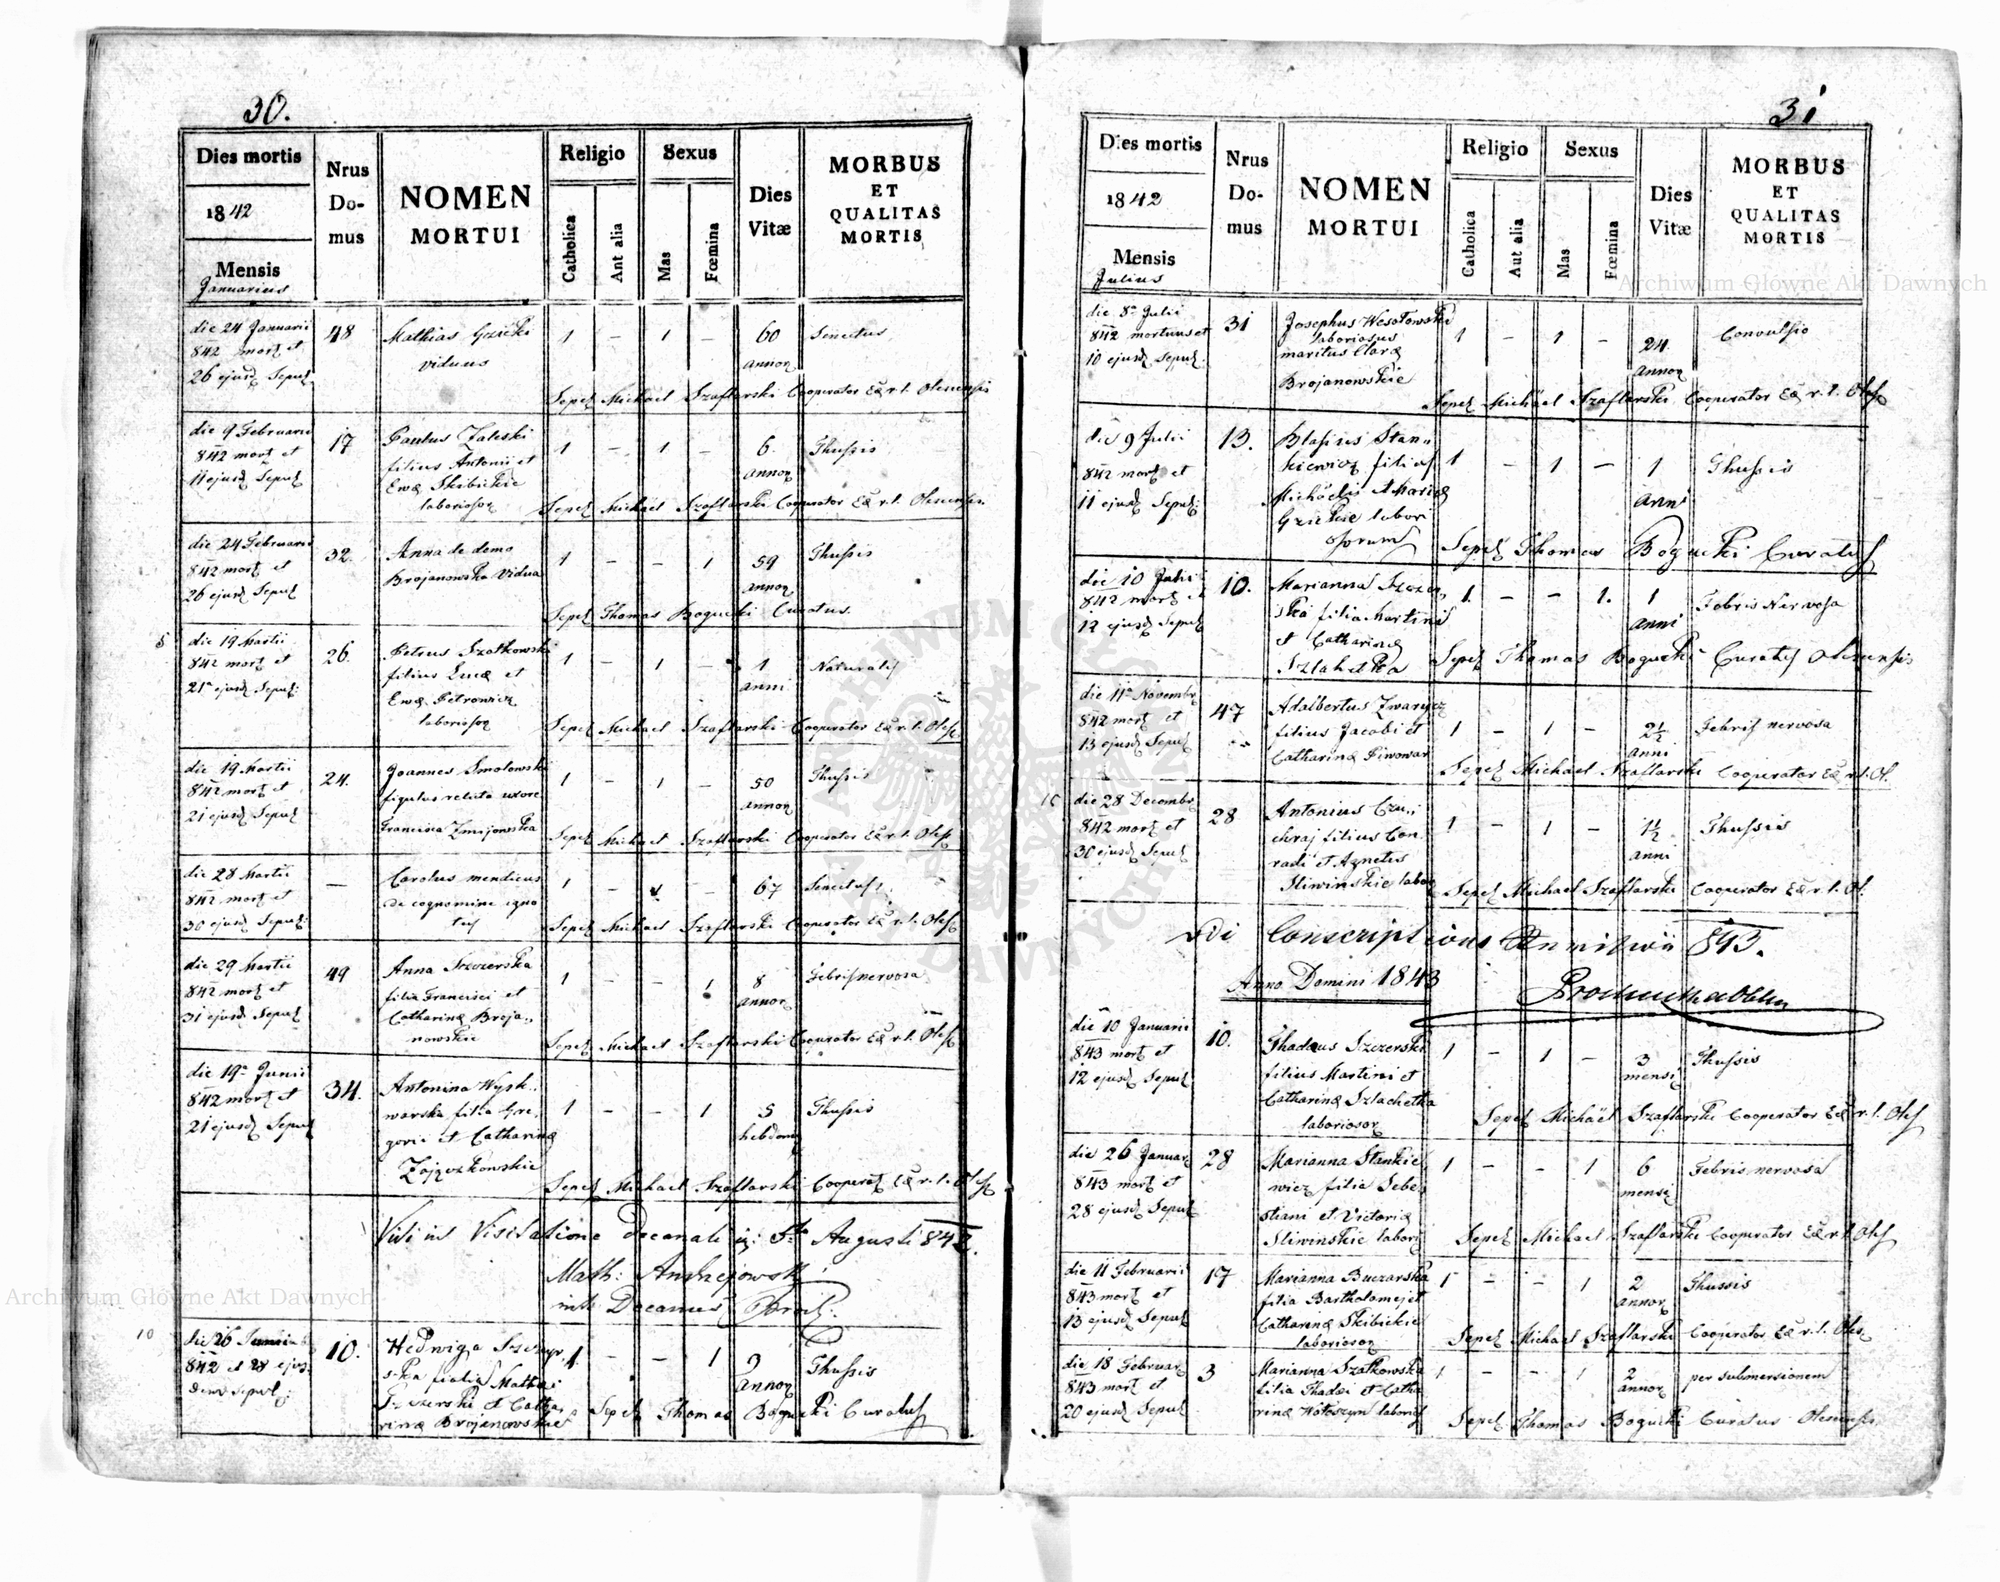 30.
Dies mortis
1842
Mensis
Januarius
Nrus Do- mus
NOMEN MORTUI
Religio
Catholica
Aut alia
Sexus
Mas
Fœmina
Dies Vitæ
MORBUS ET QUALITAS MORTIS
die 24 Januarii 48 Mathias Gzicki 1 – 1 – 60 Senectus
842 mort et viduus annor
26 ejusd Sepult
Sepel Michael Szaflarski Cooperator Ecc r. l. Olesensis
die 9 Februarii 17 Paulus Zaleski 1 – 1 – 6 Thussis
842 mort et filius Antonii et annor
11 ejusd Sepult Evæ Skibickie
laborioson
Sepel Michael Szaflarski Cooperator Ecc r. l. Olesensis
die 24 Februarii 32. Anna de domo 1 – – 1 59 Thussis
842 mort et Brojanowska Vidua annor
26 ejusd Sepult
Sepel Thomas Bogucki Curatus
5 die 19 Martii 26. Petrus Szatkowski 1 – 1 – 1 Naturalis
842 mort et filius Lucæ et anni
21 ejusd Sepult Evæ Petrowicz
laborioson
Sepel Michael Szaflarski Cooperator Ecc r. l. Oles
die 19 Martii 24. Joannes Smolowski 1 – 1 – 50 Thussis
842 mort et figulus relicta uxore annor
21 ejusd Sepult Francisca Zmijowska
Sepel Michael Szaflarski Cooperator Ecc r. l. Oles
die 28 Martii – Carolus mendicus 1 – 1 – 67 Senectus
842 mort et de cognomine igno
30 ejusd Sepult tus
Sepel Michael Szaflarski Cooperator Ecc r. l. Oles
die 29 Martii 49 Anna Szczerska 1 – – 1 8 Febris nervosa
842 mort et filia Francisci et annor
31 ejusd Sepult Catharinæ Broja-
nowskie
Sepel Michael Szaflarski Cooperator Ecc r. l. Oles
die 19 Junii 34. Antonina Wysk- 1 – – 1 5 Thussis
842 mort et warska filia Gre- hebdom
21 ejusd Sepult gorii et Catharinæ
Zajączkowskie
Sepel Michael Szaflarski Cooperat Ecc r. l. Oles
Vidi in Visitatione decanali Augusti 842.
Math: Andrejowski
Decanus Brod.
10 die 26 Junii 10. Hedwiga Szczyr 1 – – 1 Thussis
842 et 28 ejus ska filia Mathei annor
dem Sepul: Szczerski et Catha
rinæ Brojanowskie
Sepel Thomas Bogucki Curatus
31
Dies mortis
1842
Mensis
Julius
Nrus Do- mus
NOMEN MORTUI
Religio
Catholica
Aut alia
Sexus
Mas
Fœmina
Dies Vitæ
MORBUS ET QUALITAS MORTIS
die 8 Julii 31 Josephus Wesołowski 1 – 1 – 24 Convulsio
842 mortuus et laboriosus annor
10 ejusd Sepul. maritus Claræ
Brojanowskie
Sepel Michael Szaflarski Cooperator Ecc r. l. Oles
die 9 Julii 13. Blasius Stan- 1 – 1 – 1 Thussis
842 mort et kiewicz filius anni
11 ejusd Sepul: Michaelis et Mariæ
Gzickie labori
osorum
Sepel Thomas Bogucki Curatus
die 10 Julii 10. Marianna Szczer 1. – – 1. 1 Febris Nervosa
842 mort et ska filia Martini anni
12 ejusd Sepult et Catharinæ
Szlahetka
Sepel Thomas Bogucki Curatus Olesensis
die 11 Novembr 47 Adalbertus Zwarycz 1 – 1 – 2½ Febris nervosa
842 mort et filius Jacobi et anni
13 ejusd Sepult Catharinæ Piwowar
Sepel Michael Szaflarski Cooperator Ecc r. l. Ol.
15 die 28 Decembr 28 Antonius Czu- 1 – 1 – 1½ Thussis
842 mort et chraj filius Con- anni
30 ejusd Sepult radi et Agnetis
Sliwinskie labor
Sepel Michael Szaflarski Cooperator Ecc r. l. Ol.
Conscriptionis 843.
Anno Domini 1843
die 10 Januarii 10. Thadeus Szczerski 1 – 1 – 3 Thussis
843 mort et filius Martini et mensi
12 ejusd Sepult Catharinæ Szlachetka
laborioson
Sepel Michaël Szaflarski Cooperator Ecc r. l. Oles
die 26 Januar 28 Marianna Stankie 1 – – 1 6 Febris nervosa
843 mort et wicz filia Seba- mensi
28 ejusd Sepult stiani et Victoriæ
Sliwinskie labori
Sepel Michael Szaflarski Cooperator Ecc r. l. Oles
die 11 Februarii 17 Marianna Buczarska 1 – – 1 2 Thussis
843 mort et filia Bartholomej et annor
13 ejusd Sepult Catharinæ Skibickie
laborioson
Sepel Michael Szaflarski Cooperator Ecc r. l. Oles
die 18 Februar 3 Marianna Szatkowska 1 – – 1 2 per submersionem
843 mort et filia Thadæi et Catha annor
20 ejusd Sepult rinæ Wołoszyn laborios
Sepel Thomas Bogucki Curatus Olesensis
Archiwum Główne Akt Dawnych
Archiwum Główne Akt Dawnych
ARCHIWUM GŁÓWNE AKT DAWNYCH